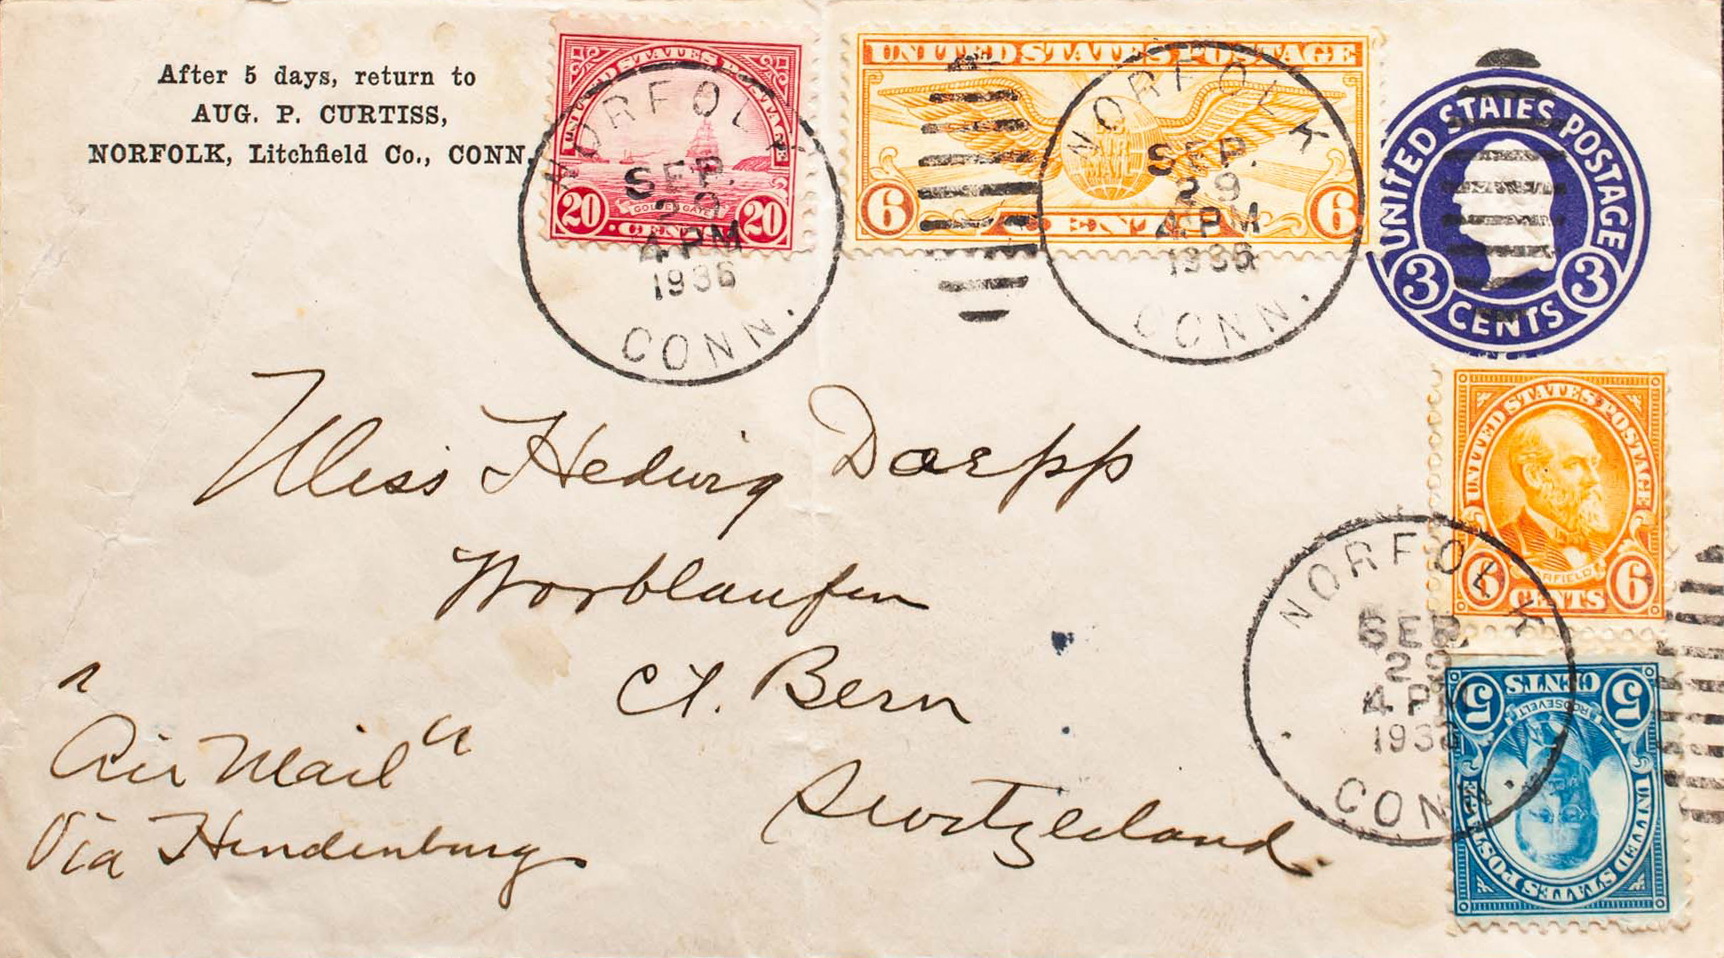 After 5 days, return to
AUG. P. CURTISS,
NORFOLK, Litchfield Co., CONN.
UNITED STATES POSTAGE
GOLDEN GATE
20 CENTS 20
NORFOLK
SEP.
29
4 PM
1936
CONN.
UNITED STATES POSTAGE
6 CENTS 6
NORFOLK
SEP.
29
4 PM
1936
CONN.
UNITED STATES POSTAGE
3 CENTS 3
Miss Hedwig Doepp
Worblaufen
Ct. Bern
Switzerland.
"Air Mail"
Via Hindenburg.
UNITED STATES POSTAGE
GARFIELD
6 CENTS 6
NORFOLK
SEP.
29
4 PM
1936
CONN.
5 CENTS 5
ROOSEVELT
UNITED STATES POSTAGE